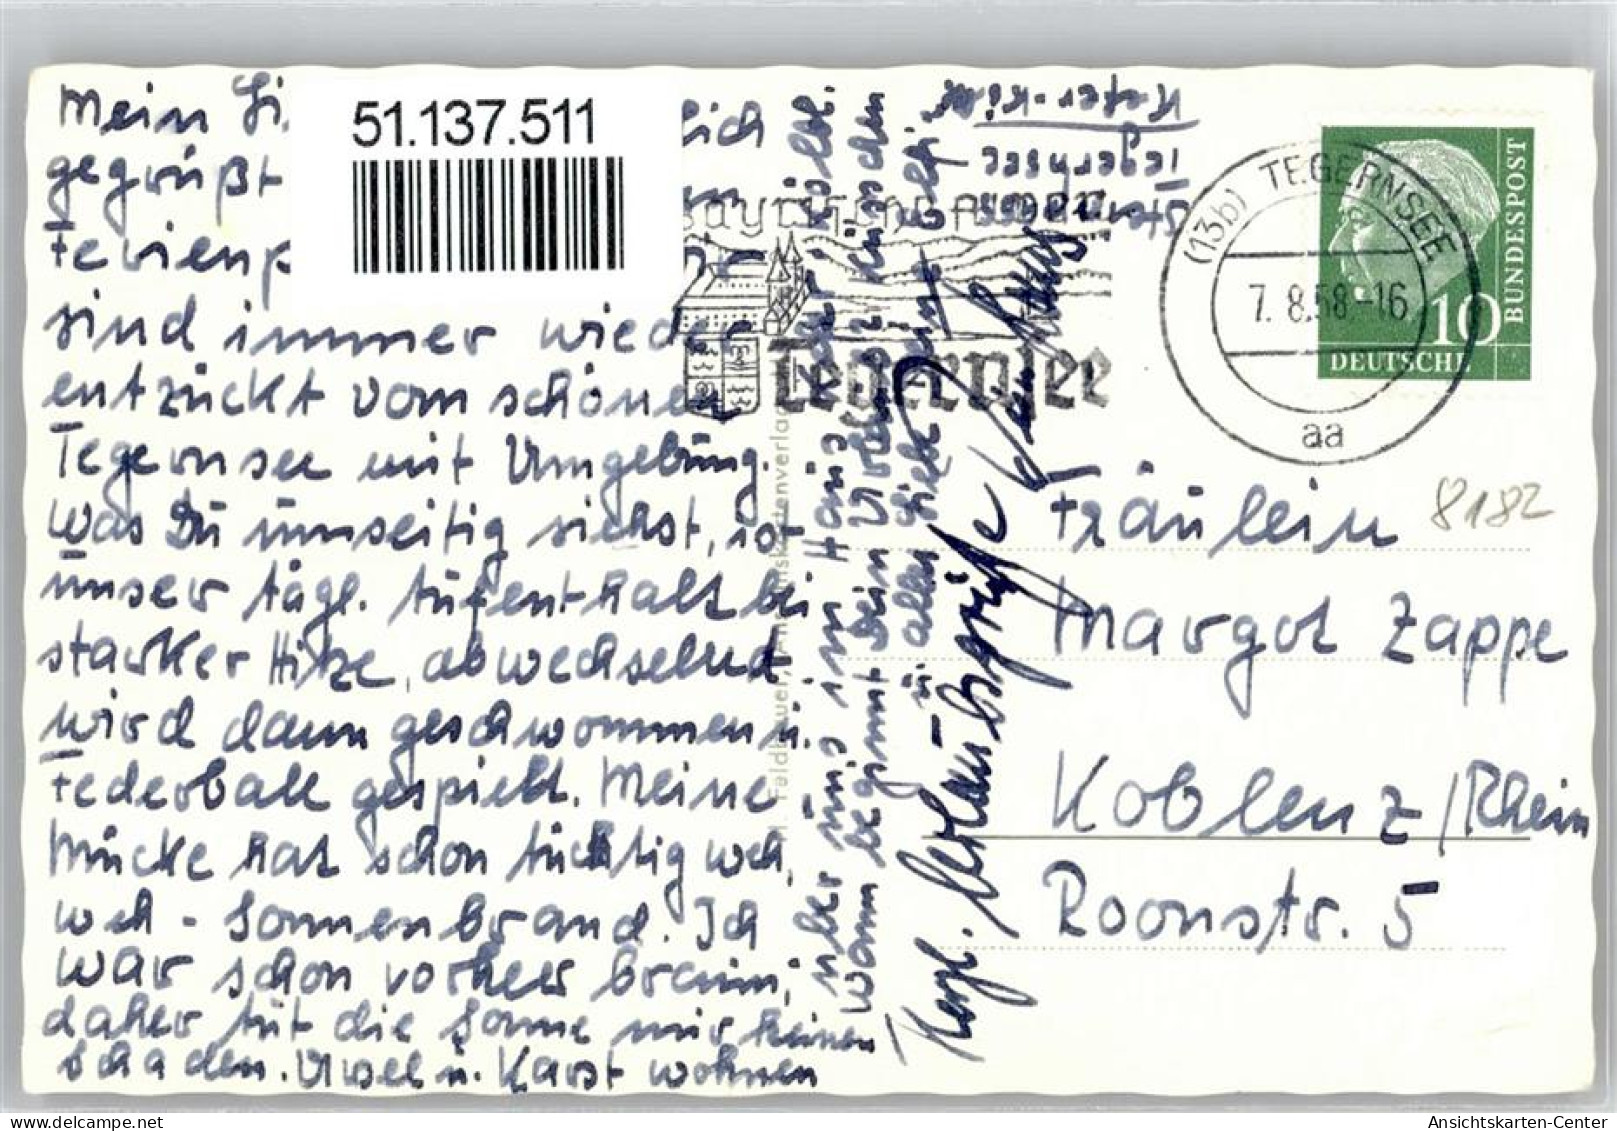 Mein
51.137.511
gegrüßt
sind immer wieder
entzückt vom schönen
Tegernsee mit Umgebung.
Was Du umseitig siehst, ist
unser tägl. Aufenthalt bei
starker Hitze, abwechselnd
wird dann geschwommen u.
Federball gespielt. Meine
Mücke hat schon tüchtig weh,
weh - Sonnenbrand. Ich
war schon vorher braun,
daher tut die Sonne mir keinen
schaden. Ursel u. Karst wohnen
über uns im Haus
Wann beginnt Dein Urlaub
u. alles Liebe
Herzl. Urlaubsgrüße
Tegernsee
Tegernsee
(13b) TEGERNSEE
7. 8.58-16
aa
10
DEUTSCHE
BUNDESPOST
8182
Fräulein
Margot Zappe
Koblenz/Rhein
Roonstr. 5
Ansichtskarten-Center